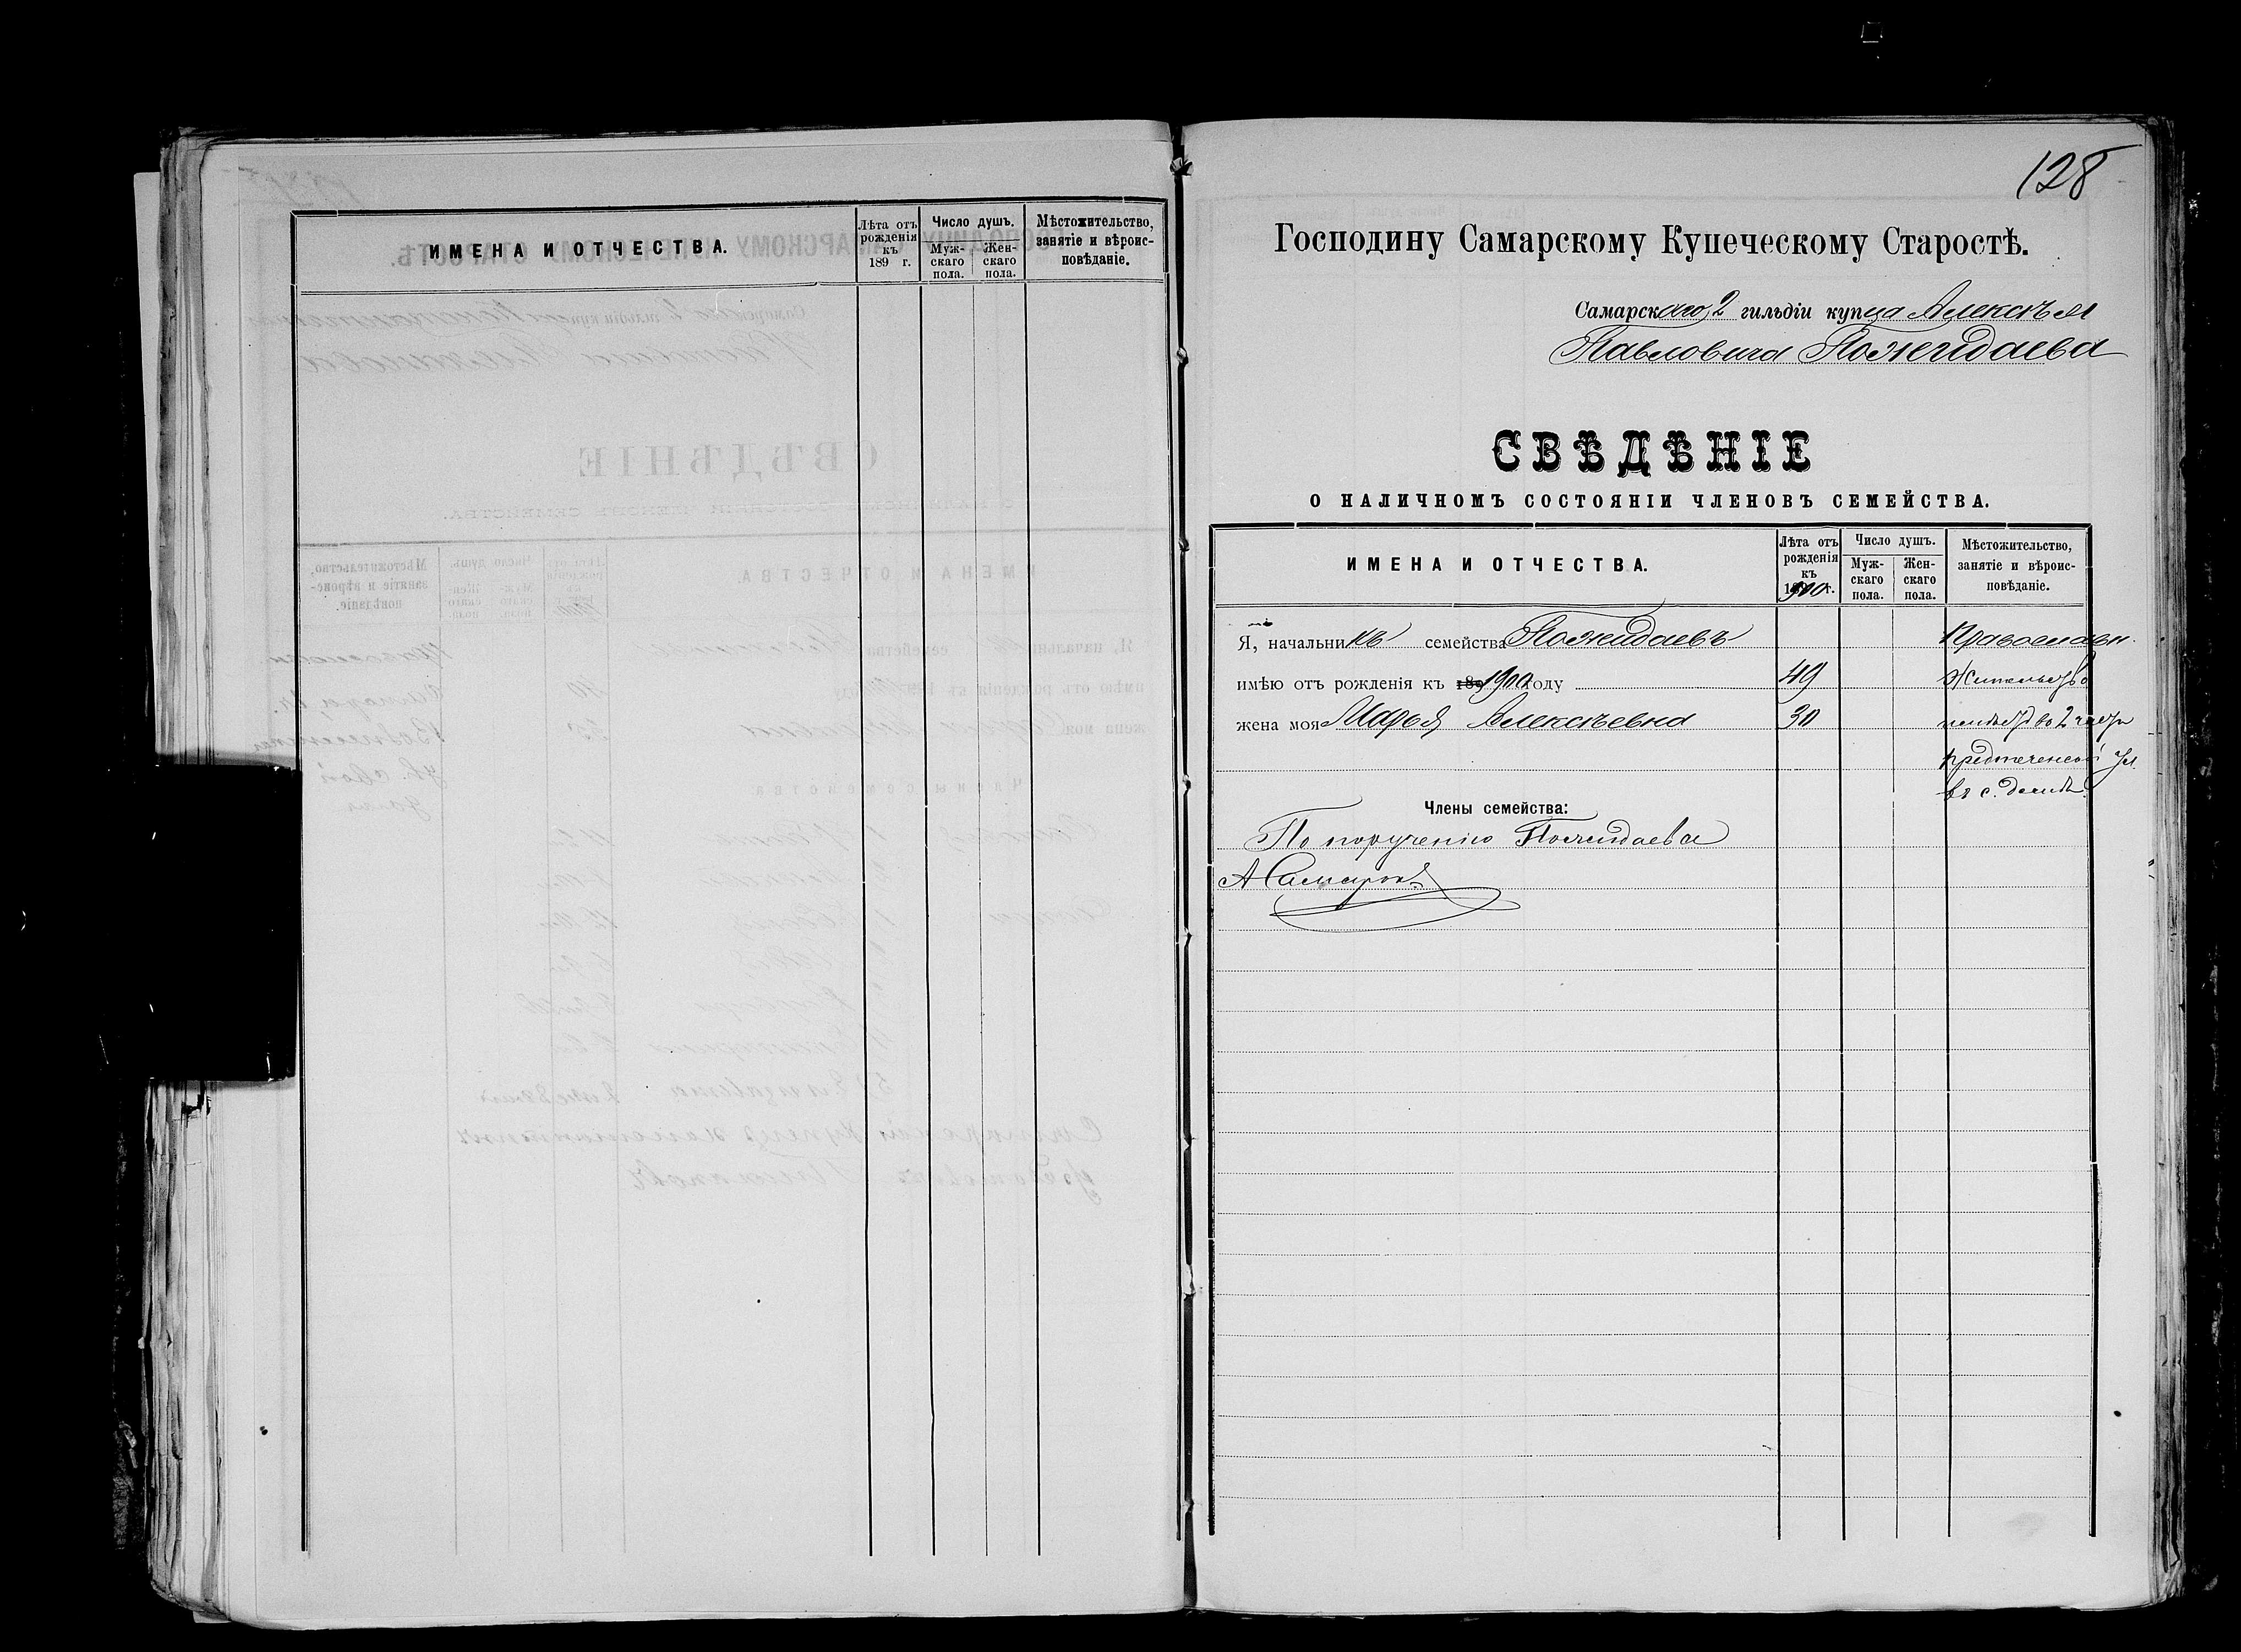 ИМЕНА И ОТЧЕСТВА.
Лѣта отъ рожденія къ 189 г.
Число душъ.
Мужскаго пола.
Женскаго пола.
Мѣстожительство, занятіе и вѣроисповѣданіе.
128
Господину Самарскому Купеческому Старостѣ.
Самарскаго 2 гильдіи купца Алексѣя
Павловича Пожидаева
СВѢДѢНІЕ
О НАЛИЧНОМЪ СОСТОЯНІИ ЧЛЕНОВЪ СЕМЕЙСТВА.
ИМЕНА И ОТЧЕСТВА.
Лѣта отъ рожденія къ 1900 г.
Число душъ.
Мужскаго пола.
Женскаго пола.
Мѣстожительство, занятіе и вѣроисповѣданіе.
Я, начальникъ семейства Пожидаевъ Православн.
имѣю отъ рожденія къ 1900 году 49 Жительство
жена моя Марья Алексѣевна 30 во 2 части
Предтеченской ул.
въ с. домѣ
Члены семейства:
По порученію Пожидаева
А